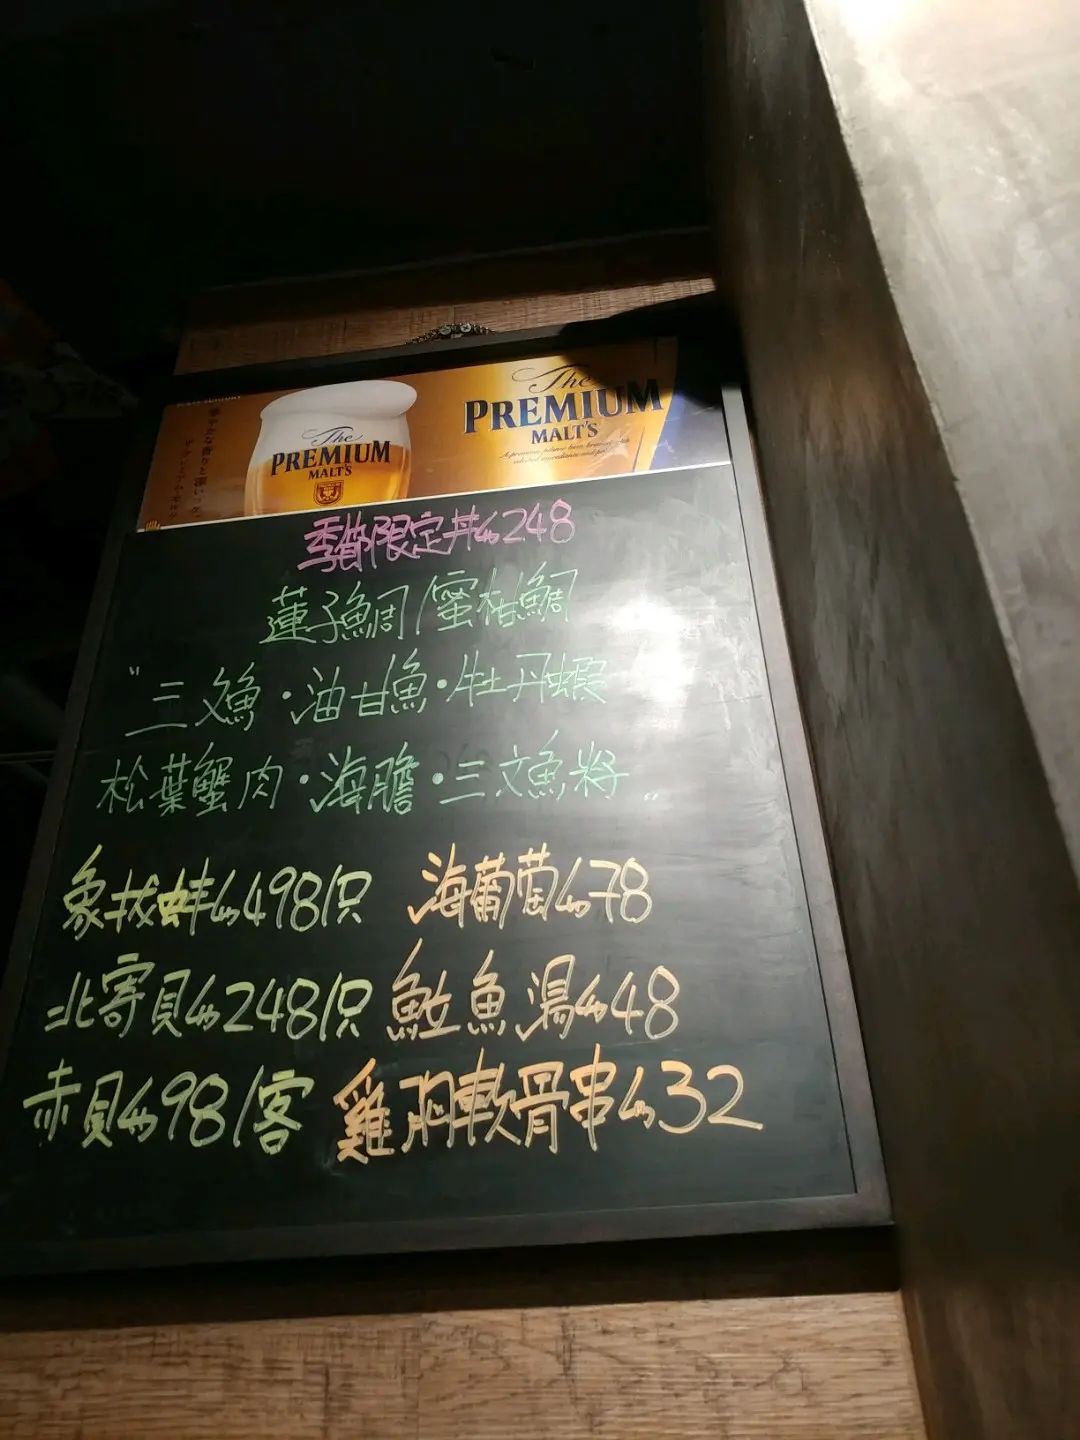 The
PREMIUM
MALT'S
The
PREMIUM
MALT'S
季節限定丼$248
蓮子鯛/蜜柑鯛
"三文魚・油甘魚・牡丹蝦
松葉蟹肉・海膽・三文魚将"
象拔蚌$498/只 海葡萄$78
北寄貝$248/只 魚立魚湯$48
赤貝$98/客 雞胸軟骨串$32